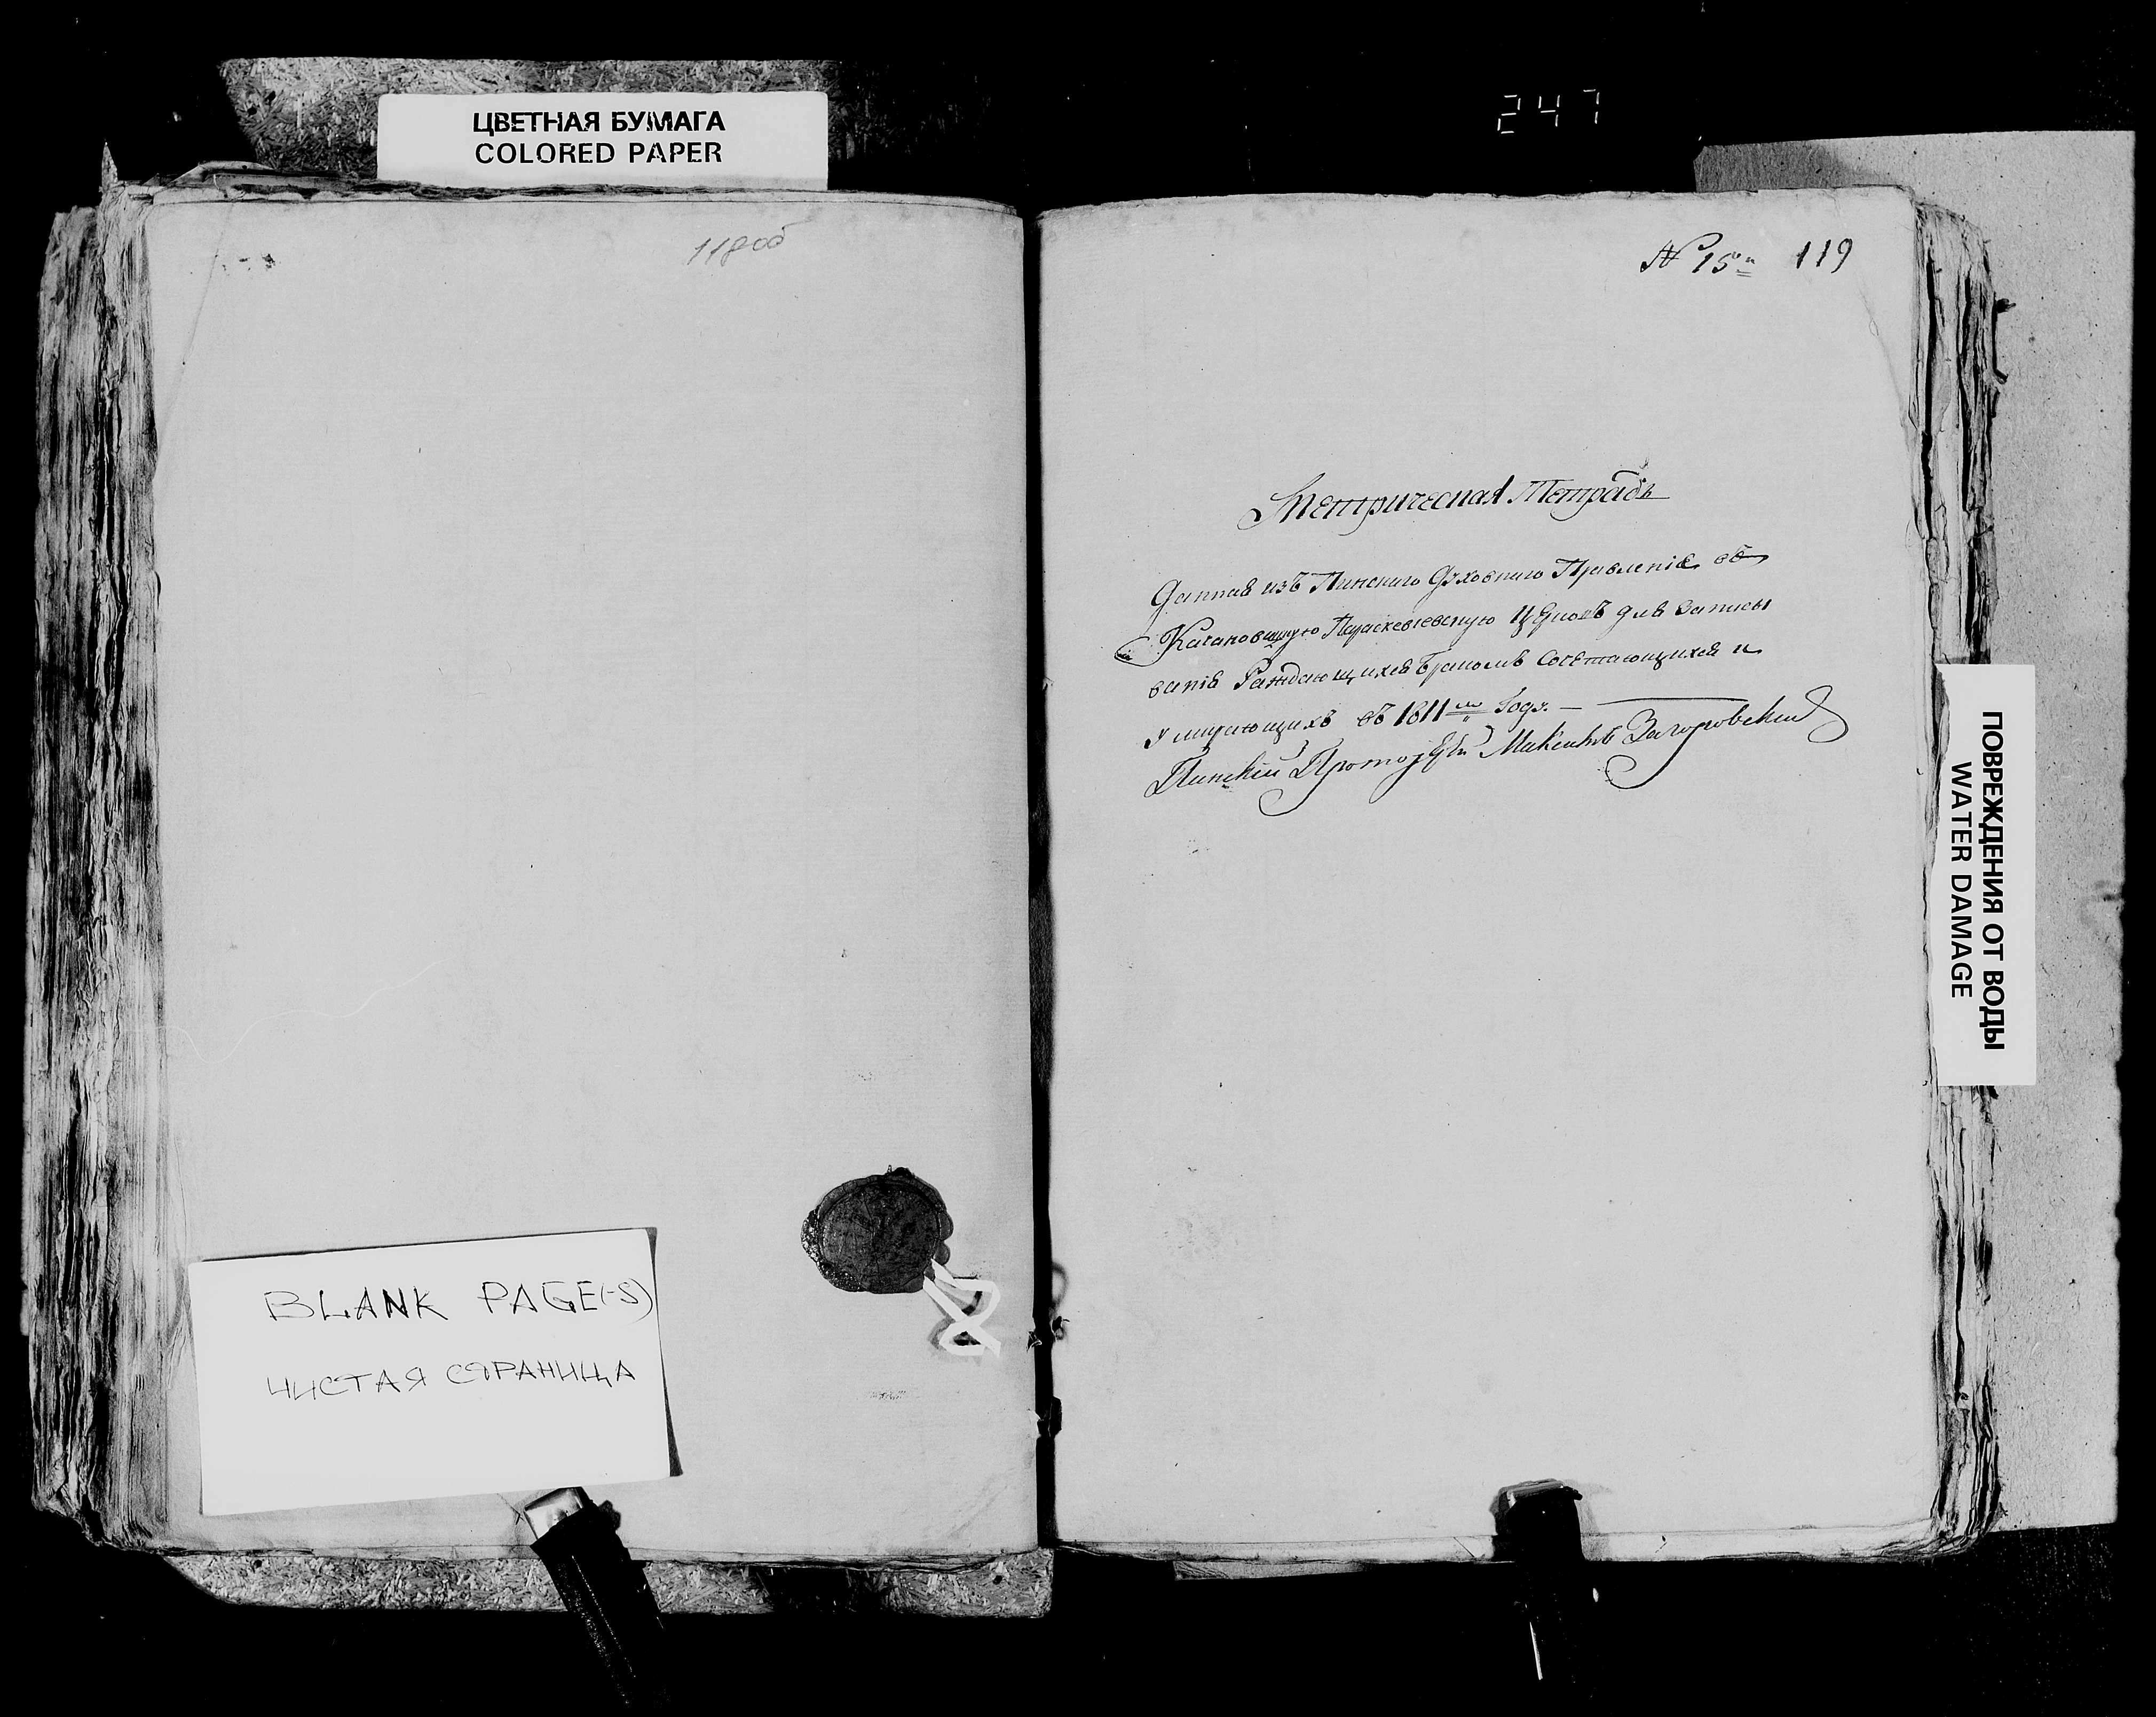 ЦВЕТНАЯ БУМАГА
COLORED PAPER
247
118об
№ 15й 119
Метрическая Тетрадь
Данная изъ Пинскаго Духовнаго Правленія въ
Качановицкую Параскевіевскую Церковь для записы
ванія Раждающихся бракомъ Сочетающихся и
умирающихъ въ 1811м Годѣ. —
Пинскій Протоіерей Максимъ Загоровскій
BLANK PAGE(-S)
ЧИСТАЯ СТРАНИЦА
ПОВРЕЖДЕНИЯ ОТ ВОДЫ
WATER DAMAGE